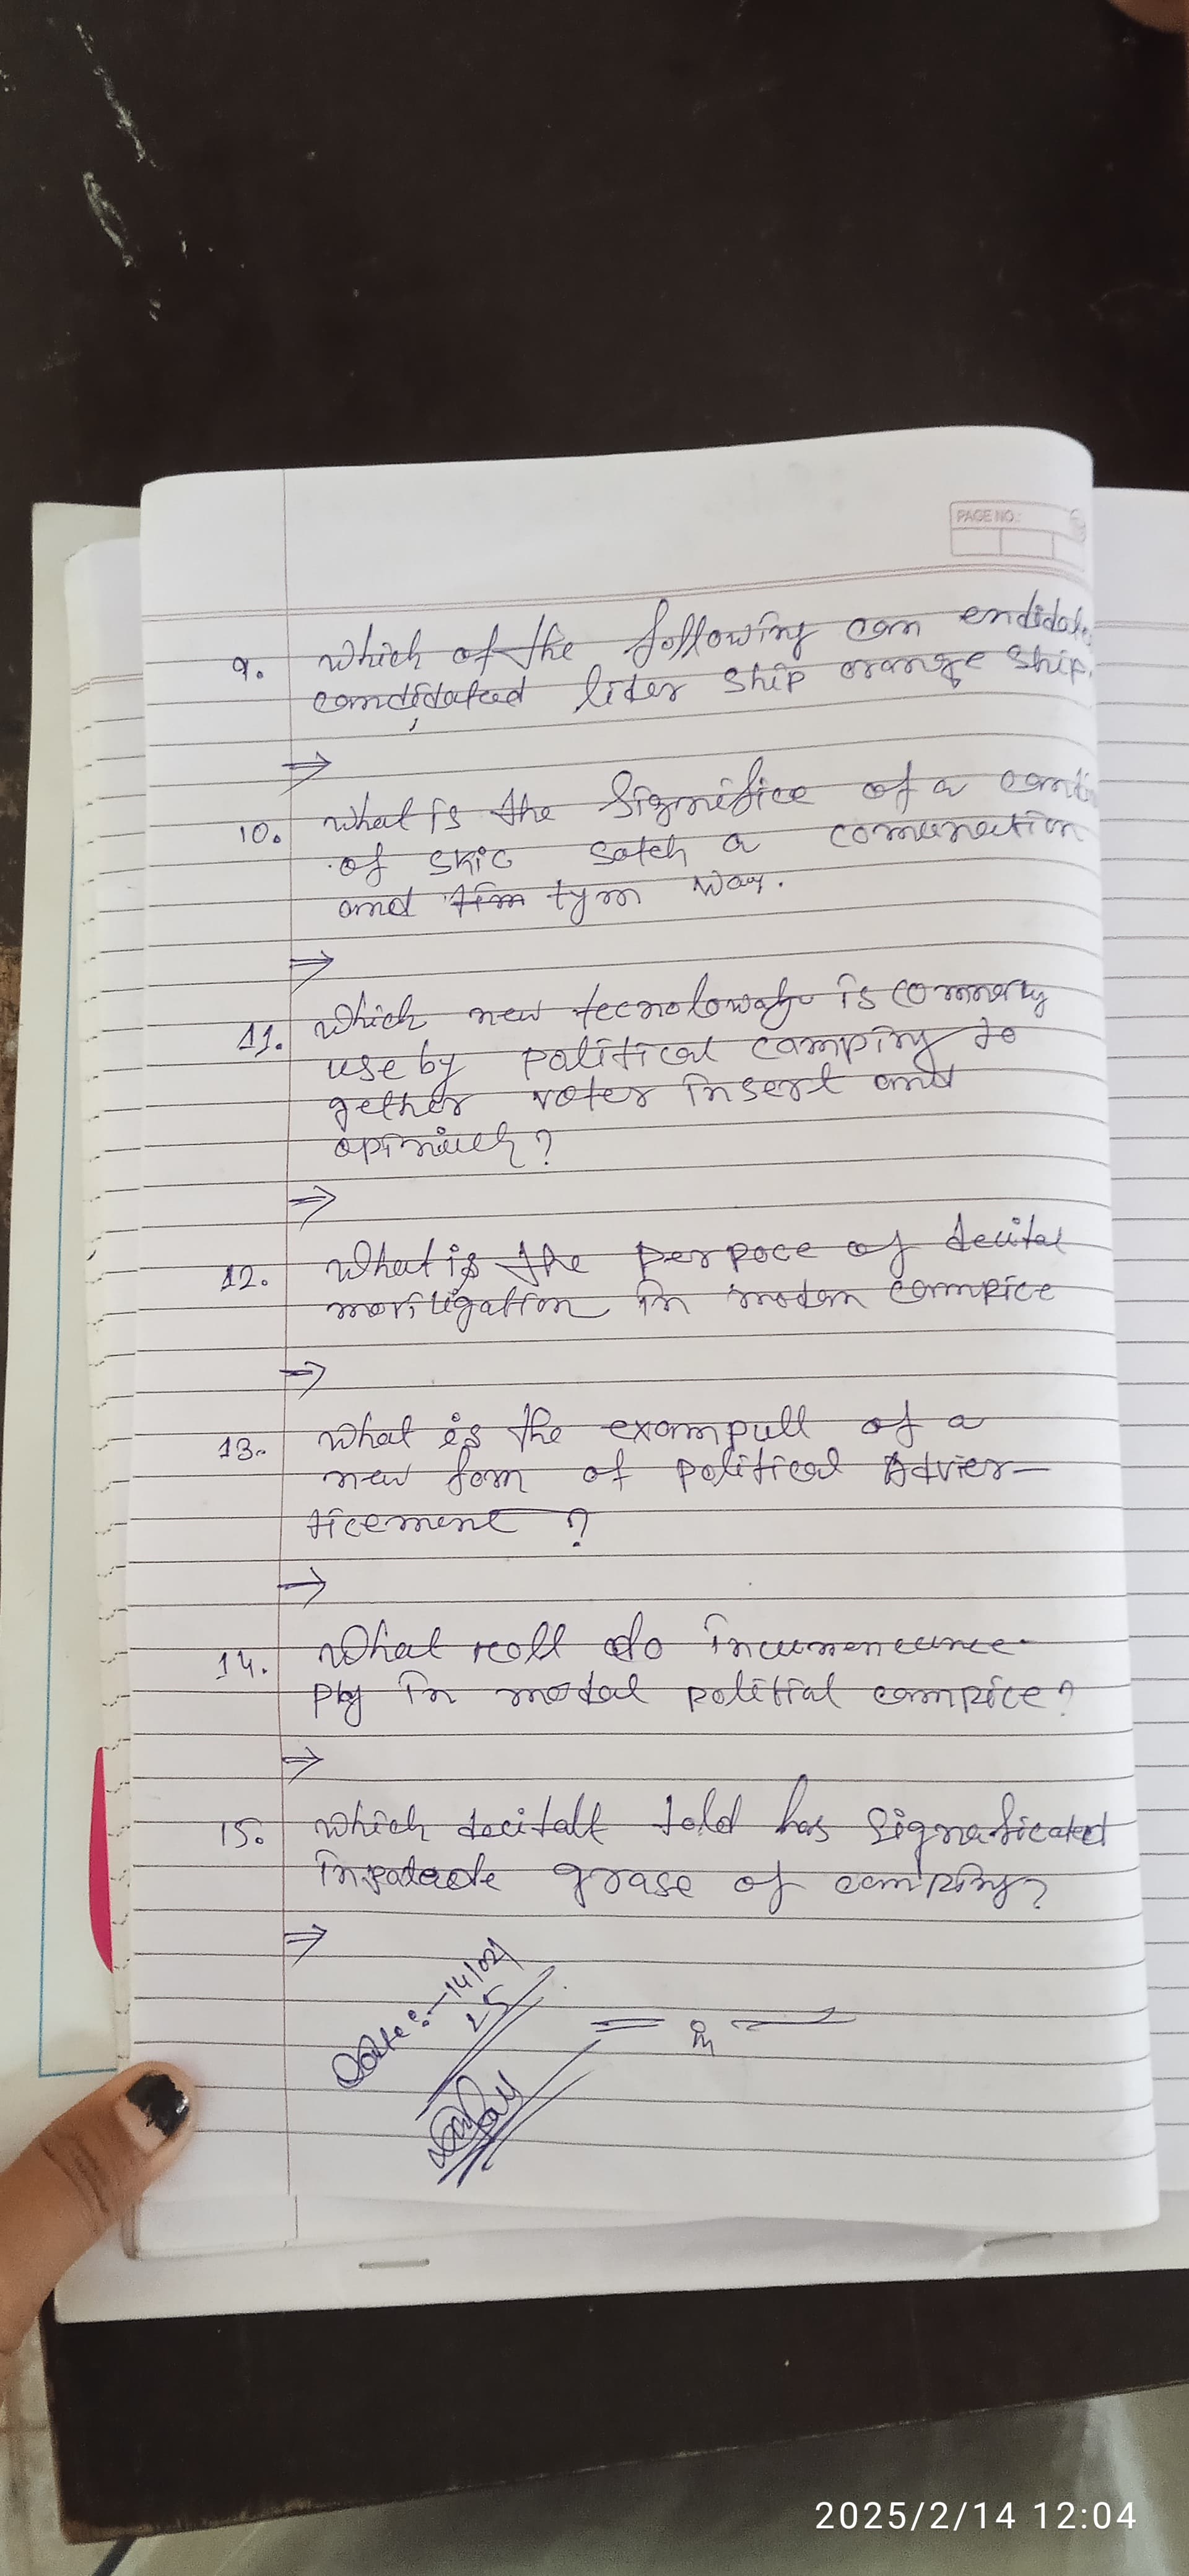 PAGE NO.:
9. which of the following can endidate
candidated lider ship orange ship.
⇒
10. what is the Significe of a
of skic satch a comunection
and tym way.
⇒
11. which new tecnolowafy is commonly
use by political camping to
gether voter insert and
⇒
12. What is the perpoce of decital
in modan compice
⇒
13. what is the exampull of a
new fom of political Advier-
ticement ?
⇒
14. What roll do
ply in modal politial compice?
⇒
15. which decitall told has Signaficated
grase of camping?
⇒
Date:- 14/02/
25
2025/2/14 12:04